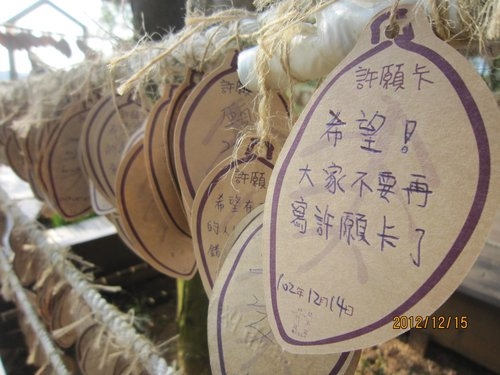 許願卡
希望!
大家不要再
寫許願卡了
102年12月14日
許願
許願
希望在
的人
錯
2012/12/15